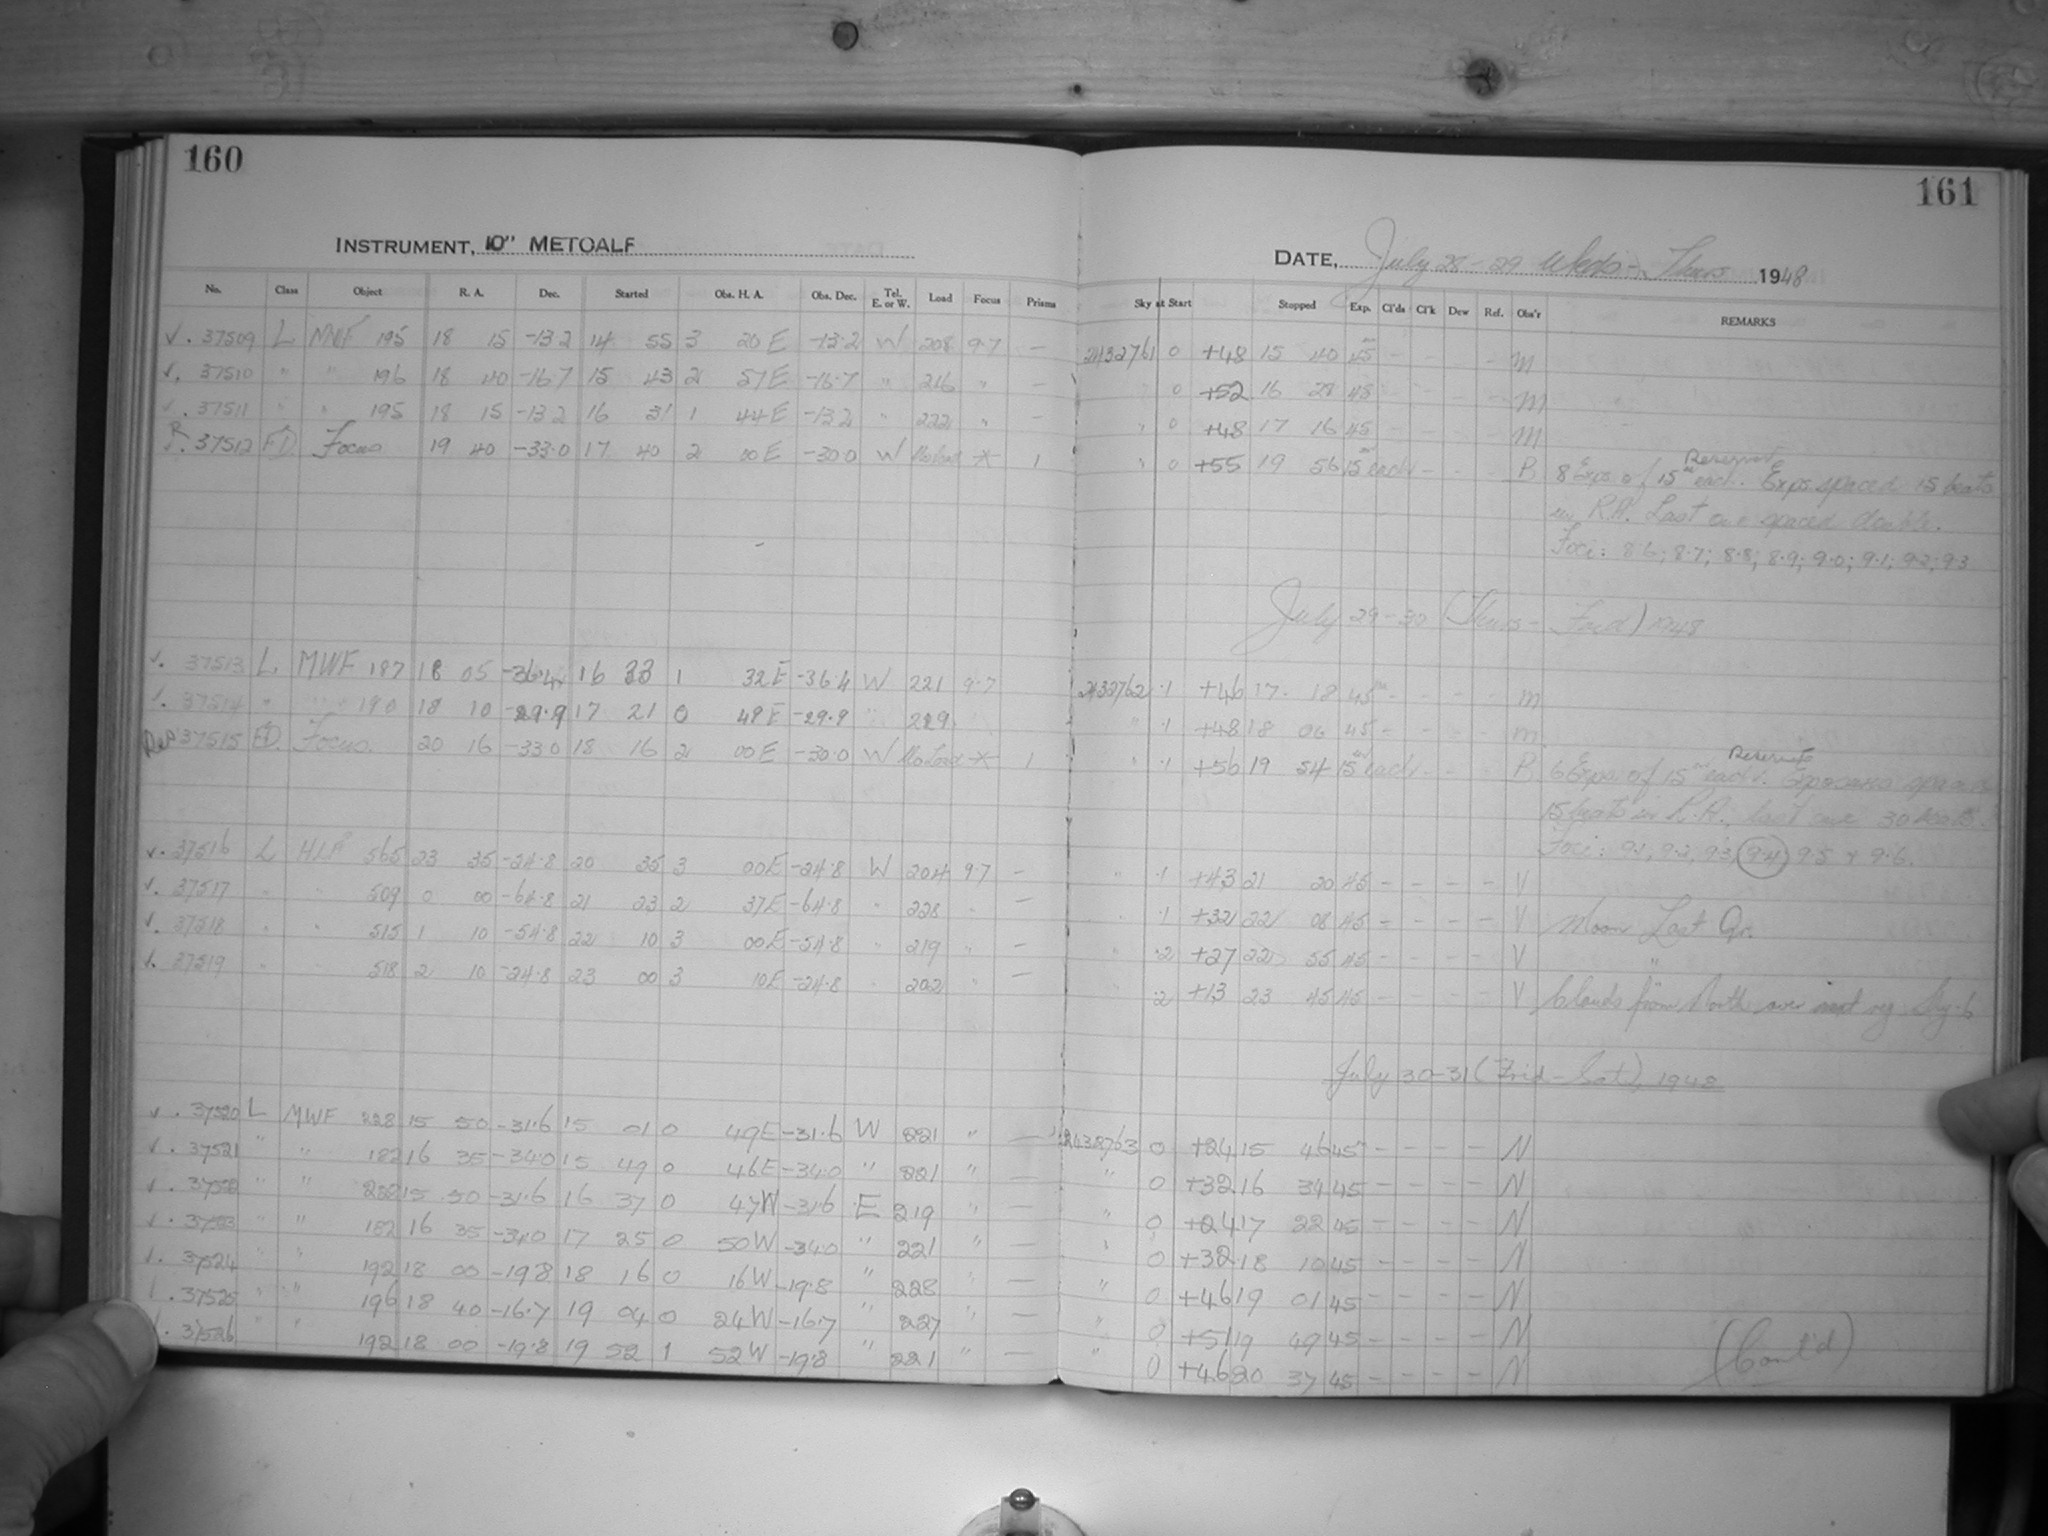 160
161
INSTRUMENT, 10" METCALF
DATE, July 28-29 Weds-Thurs 1948
No. Class Object R. A. Dec. Started Obs. H. A. Obs. Dec. Tel. E. or W. Load Focus Prisms Sky at Start Stopped Exp. Cl'ds Cl'k Dew Ref. Obs'r REMARKS
√. 37509 L MWF 195 18 15 -13.2 14 55 3 20 E -13.2 W 208 9.7 — 2432761 0 +48 15 40 45 - - - - M
√. 37510 " " 196 18 40 -16.7 15 43 2 57E -16.7 " 216 " — " 0 +52 16 28 45 - - - - M
√. 37511 " " 195 18 15 -13.2 16 31 1 44E -13.2 " 222 " — " 0 +48 17 16 45 - - - - M
R. 37512 FD Focus 19 40 -33.0 17 40 2 00E -30.0 W No Load * 1 " 0 +55 19 56 15 each - - - R 8 Exps of 15 each. Exps. spaced 15 beats
in R.A. Last one spaced double.
Foci: 8.6; 8.7; 8.8; 8.9; 9.0; 9.1; 9.2; 9.3
July 29-30 (Thurs - Frid) 1948
√. 37513 L MWF 187 18 05 -36.4 16 33 1 32E -36.4 W 221 9.7 2432762 .1 +46 17 18 45 - - - - M
√. 37514 " " 190 18 10 -29.9 17 21 0 49E -29.9 " 229 " .1 +48 18 06 45 - - - - M
Rep 37515 FD Focus. 20 16 -33.0 18 16 2 00E -30.0 W No Load * 1 " .1 +56 19 54 15 each - - - R 6 Exps of 15 each. Exposures spaced
15 beats in R.A., last one 30 beats.
Foci: 9.1, 9.2, 9.3, 9.4, 9.5 & 9.6.
√. 37516 L HLF 565 23 35 -24.8 20 35 3 00E -24.8 W 204 9.7 — " .1 +43 21 20 45 - - - - V
√. 37517 " " 509 0 00 -64.8 21 23 2 37E -64.8 " 228 " — " .1 +32 22 08 45 - - - - V Moon Last Qr.
√. 37518 " " 515 1 10 -54.8 22 10 3 00E -54.8 " 219 " — " .2 +27 22 55 45 - - - - V "
√. 37519 " " 518 2 10 -24.8 23 00 3 10E -24.8 " 202 " — .2 +13 23 45 45 - - - - V Clouds from North over next reg. Sky .6
July 30-31 (Frid-Sat), 1948
√. 37520 L MWF 228 15 50 -31.6 15 01 0 49E -31.6 W 221 " — 2432763 0 +24 15 46 45 - - - - N
√. 37521 " " 182 16 35 -34.0 15 49 0 46E -34.0 " 221 " — " 0 +32 16 34 45 - - - - N
√. 37522 " " 228 15 50 -31.6 16 37 0 47W -31.6 E 219 " — " 0 +24 17 22 45 - - - - N
√. 37523 " " 182 16 35 -34.0 17 25 0 50W -34.0 " 221 " — " 0 +32 18 10 45 - - - - N
√. 37524 " " 192 18 00 -19.8 18 16 0 16W -19.8 " 228 " — " 0 +46 19 01 45 - - - - N
√. 37525 " " 196 18 40 -16.7 19 04 0 24W -16.7 " 227 " — " 0 +51 19 49 45 - - - - N
√. 37526 " " 192 18 00 -19.8 19 52 1 52W -19.8 " 221 " — " 0 +46 20 37 45 - - - - N
(Cont'd)